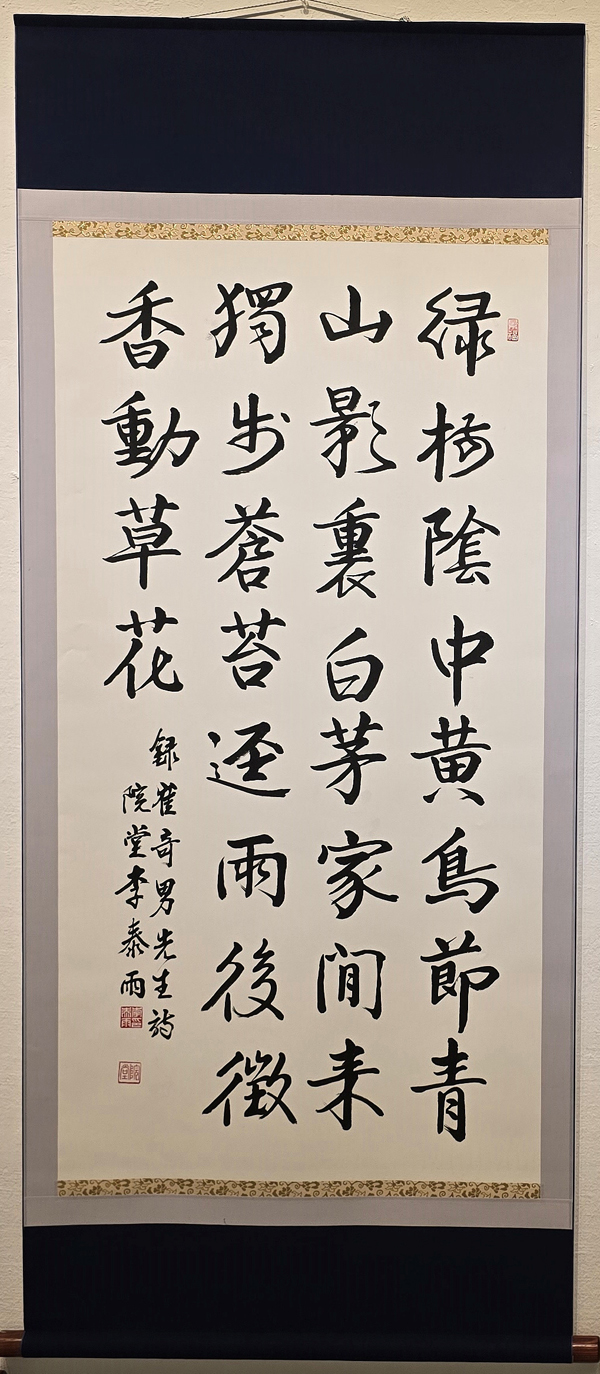 緑樹陰中黄鳥節青
山影裏白茅家閒来
獨步蒼苔逕雨後微
香動草花
録崔奇男先生詩
院堂李泰雨